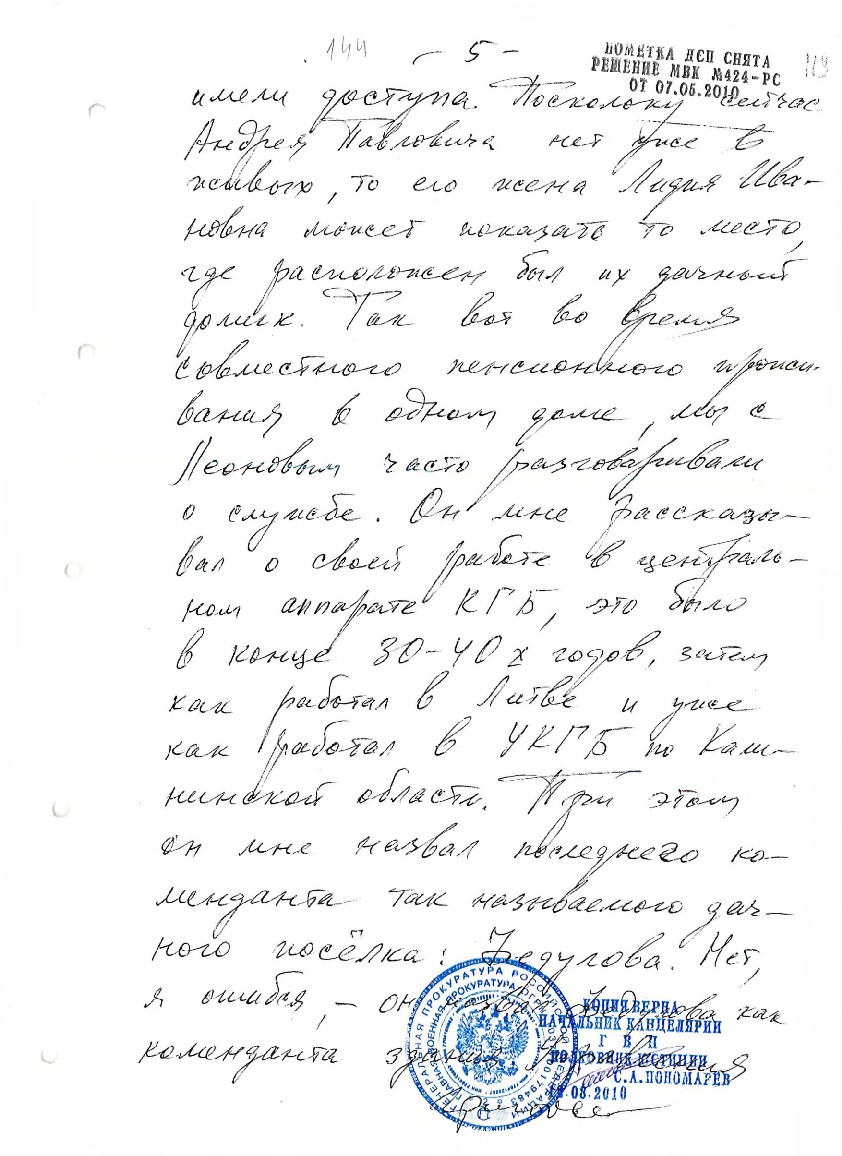 144
- 5 -
ПОМЕТКА ДСП СНЯТА
РЕШЕНИЕ МВК №424-РС
ОТ 07.05.2010
имели доступа. Поскольку сейчас
Андрея Павловича нет уже в
живых, то его жена Лидия Ива-
новна может показать то место,
где расположен был их дачный
домик. Так вот во время
совместного пенсионного прожи-
вания в одном доме, мы с
Леоновым часто разговаривали
о службе. Он мне рассказы-
вал о своей работе в централь-
ном аппарате КГБ, это было
в конце 30-40х годов, затем
как работал в Литве и уже
как работал в УКГБ по Кали-
нинской области. При этом
он мне назвал последнего ко-
менданта так называемого дач-
ного посёлка: Бедулова. Нет,
я ошибся, – он назвал как
коменданта здания Управления
КОПИЯ ВЕРНА
НАЧАЛЬНИК КАНЦЕЛЯРИИ
Г В П
ПОЛКОВНИК ЮСТИЦИИ
С.А.ПОНОМАРЕВ
08.2010
ГЕНЕРАЛЬНАЯ ПРОКУРАТУРА РОССИЙСКОЙ ФЕДЕРАЦИИ
ГЛАВНАЯ ВОЕННАЯ ПРОКУРАТУРА